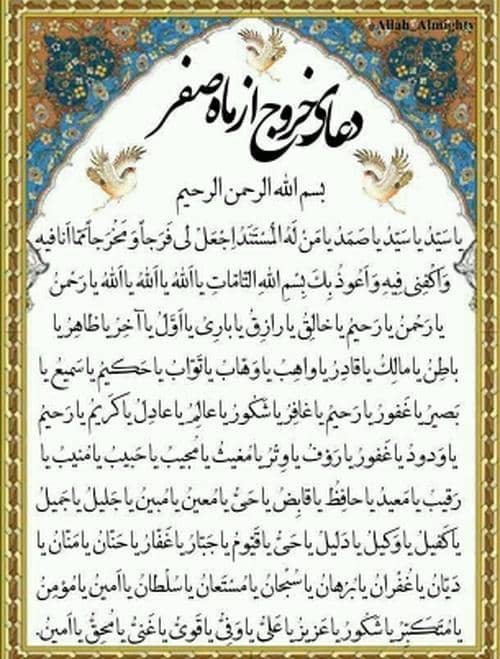 @Allah_Almighty
دعای خروج از ماه صفر
بسم الله الرحمن الرحیم
یا سَیِّدُ یا سَیِّدُ یا صَمَدُ یا مَن لَهُ الْمُسْتَنَدُ اِجْعَلْ لی فَرَجاً وَ مَخْرَجاً مِمّا اَنَا فیهِ
وَ اَکْفِنی فیهِ وَ اَعوذُ بِكَ بِسْمِ اللهِ التّامّاتِ یا اَللهُ یا اَللهُ یا اَللهُ یا رَحْمنُ
یا رَحْمنُ یا رَحیمُ یا خالِقُ یا رازِقُ یا باریُ یا اَوَّلُ یا آخِرُ یا ظاهِرُ یا
باطِنُ یا مالِكُ یا قادِرُ یا واهِبُ یا وَهّابُ یا تَوّابُ یا حَکیمُ یا سَمیعُ یا
بَصیرُ یا غَفورُ یا رَحیمُ یا غافِرُ یا شَکُورُ یا عالِمُ یا عادِلُ یا کَریمُ یا رَحیمُ
یا وَدودُ یا غَفورُ یا رَؤفُ یا وِتْرُ یا مُغیثُ یا مُجیبُ یا حَبیبُ یا مُنیبُ یا
رَقیبُ یا مَعیدُ یا حافِظُ یا قابِضُ یا حَیُّ یا مُعینُ یا مُبینُ یا جَلیلُ یا جَمیلُ
یا کَفیلُ یا وَکیلُ یا دَلیلُ یا حَیُّ یا قَیّومُ یا جَبّارُ یا غَفّارُ یا حَنّانُ یا مَنّانُ یا
دَیّانُ یا غُفْرانُ یا بُرْهانُ یا سُبْحانُ یا مُسْتَعانُ یا سُلْطانُ یا اَمینُ یا مُؤمِنُ
یا مُتَکَبِّرُ یا شَکُورُ یا عَزیزُ یا عَلیُّ یا وَفیُّ یا قَویُّ یا غَنیُّ یا مُحِقُّ یا اَمینُ.